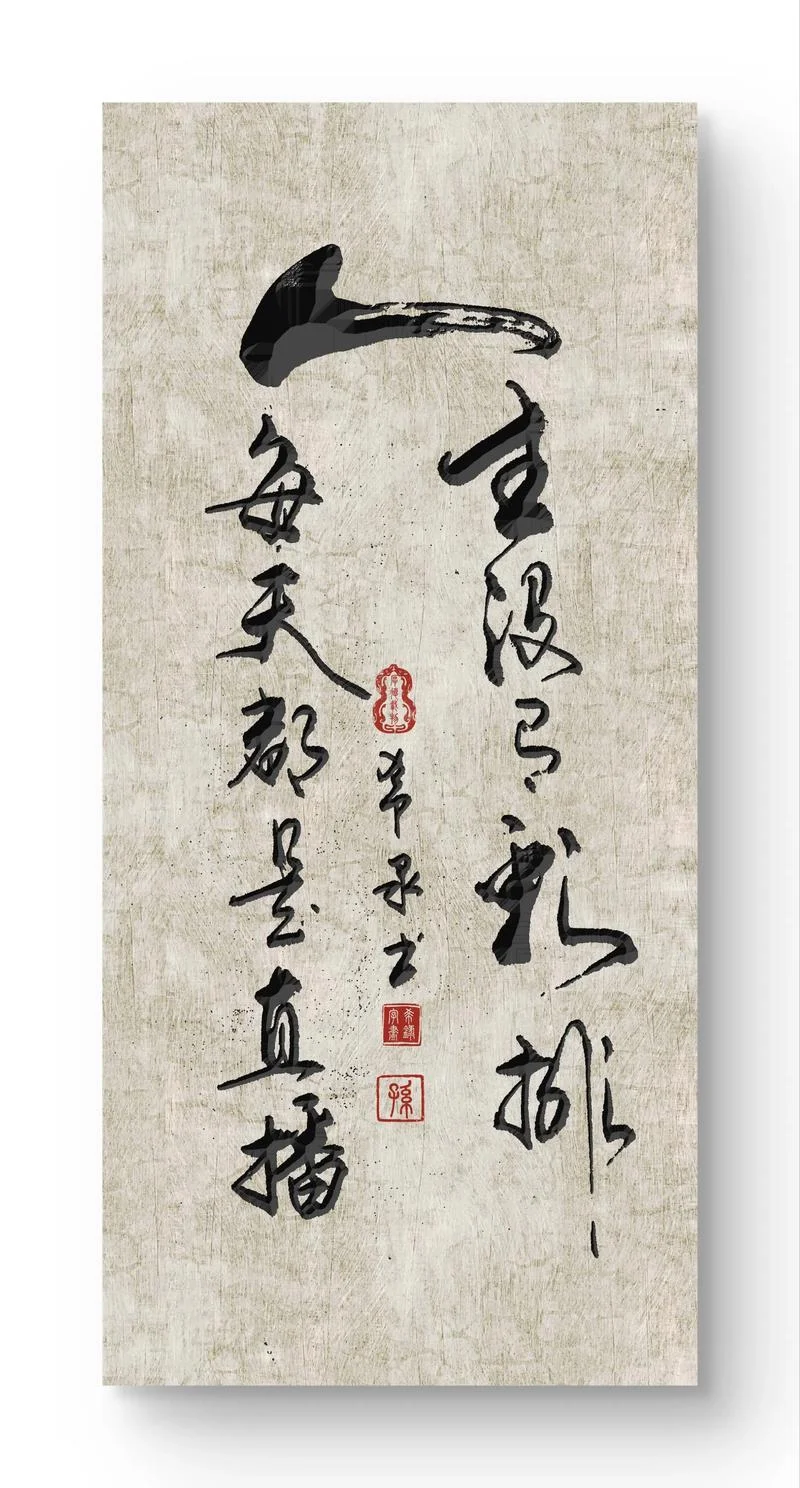 一生没有彩排
每天都是直播
希录书
孫